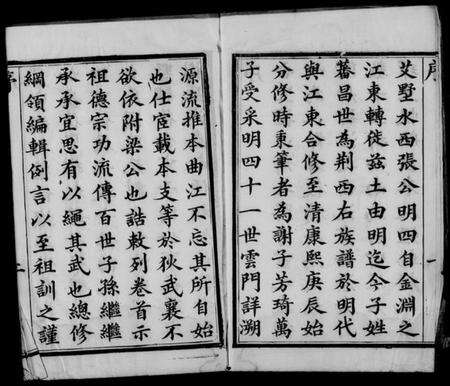 序
一
艾墅水西張公明四自金淵之
江東轉徙茲土由明迄今子姓
蕃昌世為荆西右族譜於明代
與江東合修至清康熙庚辰始
分修時秉筆者為謝子芳琦萬
子受采明四十一世雲門詳溯
源流推本曲江不忘其所自始
也仕宦載本支等於狄武襄不
欲依附梁公也誥敕列卷首示
祖德宗功流傳百世子孫繼繼
承承宜思有以繩其武也總修
綱領編輯例言以至祖訓之謹
序
二